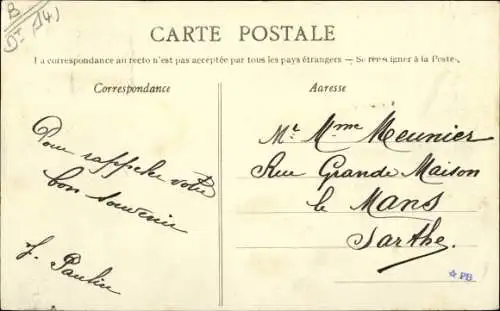 B
Dt (14)
CARTE POSTALE
La correspondance au recto n'est pas acceptée par tous les pays étrangers — Se renseigner à la Poste.
Correspondance
Adresse
Pour rappeler votre
bon souvenir
J. Paulin
Mr Mme Meunier
Rue Grande Maison
le Mans
Sarthe.
* PB